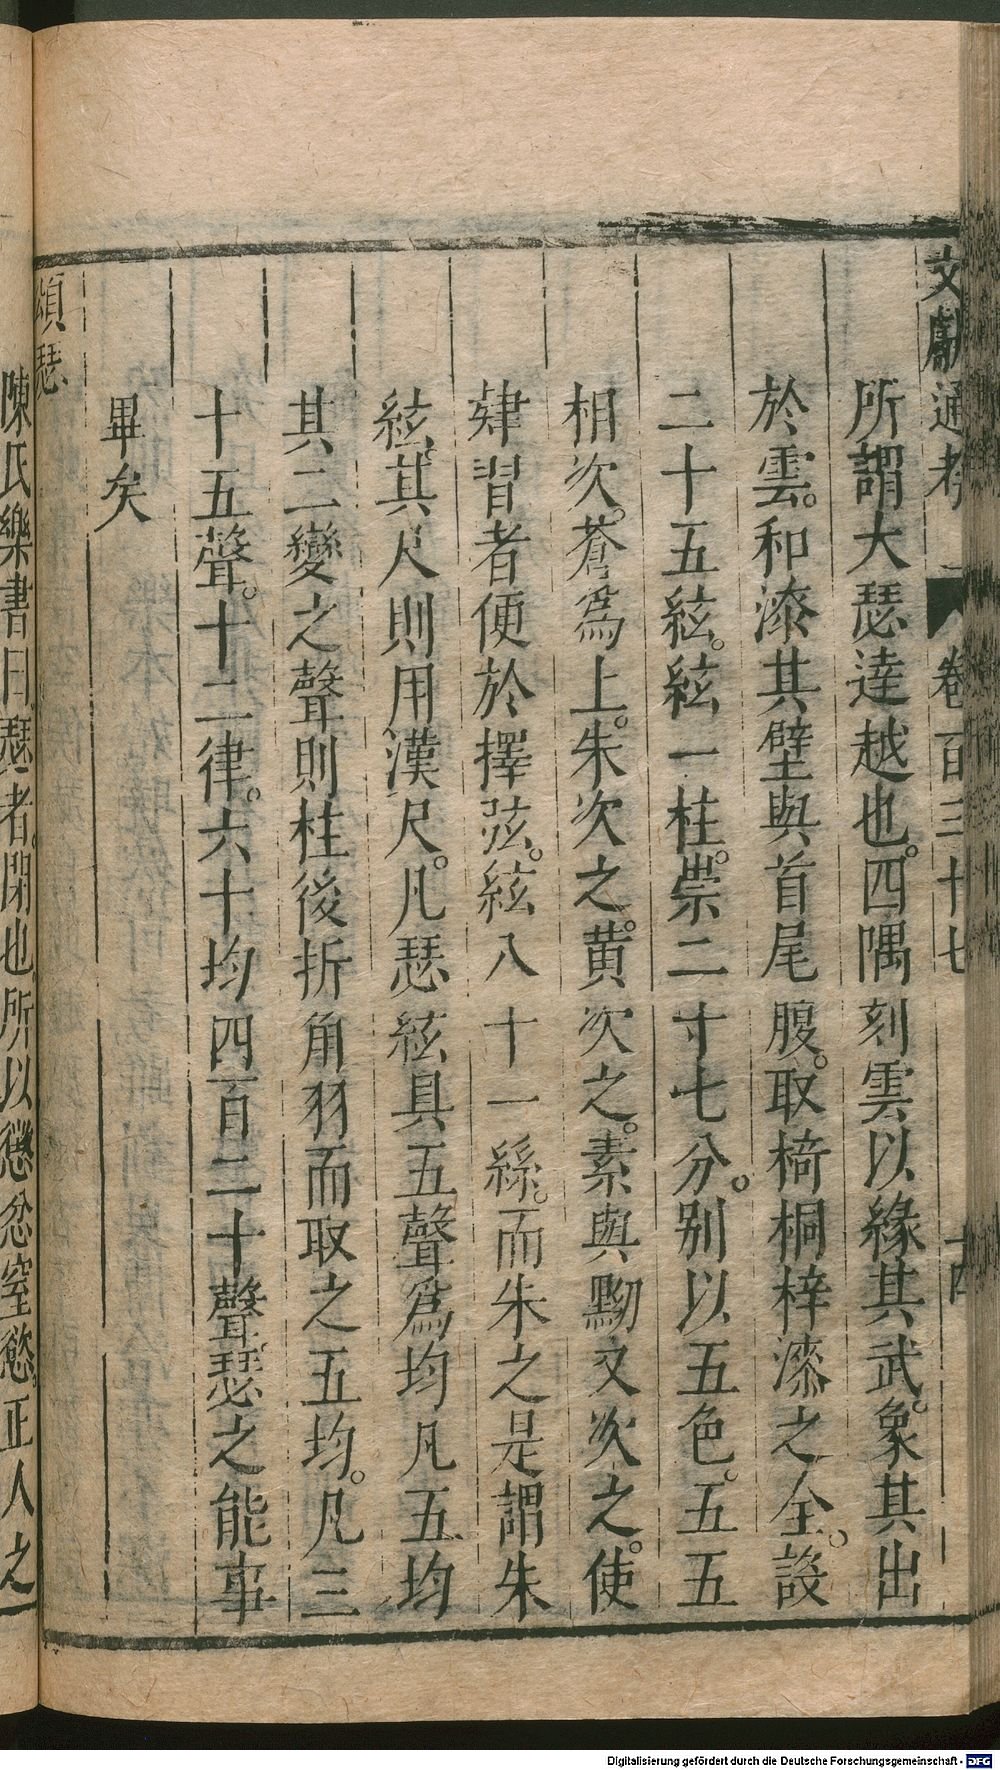 文獻通考 卷百三十七 十四
所謂大瑟達越也。四隅刻雲以緣其武。象其出
於雲。和漆其壁與首尾腹。取椅桐梓漆之全。設
二十五絃。絃一柱。崇二寸七分。别以五色。五五
相次。蒼爲上。朱次之。黄次之。素與黝又次之。使
肄習者便於擇弦。絃八十一絲。而朱之是謂朱
絃。其尺則用漢尺。凡瑟絃具五聲爲均凡五均
其二變之聲則柱後折角羽而取之五均。凡三
十五聲。十二律。六十均四百二十聲。瑟之能事
畢矣
頌瑟
陳氏樂書曰瑟者。閉也所以懲忿窒慾。正人之
Digitalisierung gefördert durch die Deutsche Forschungsgemeinschaft - DFG